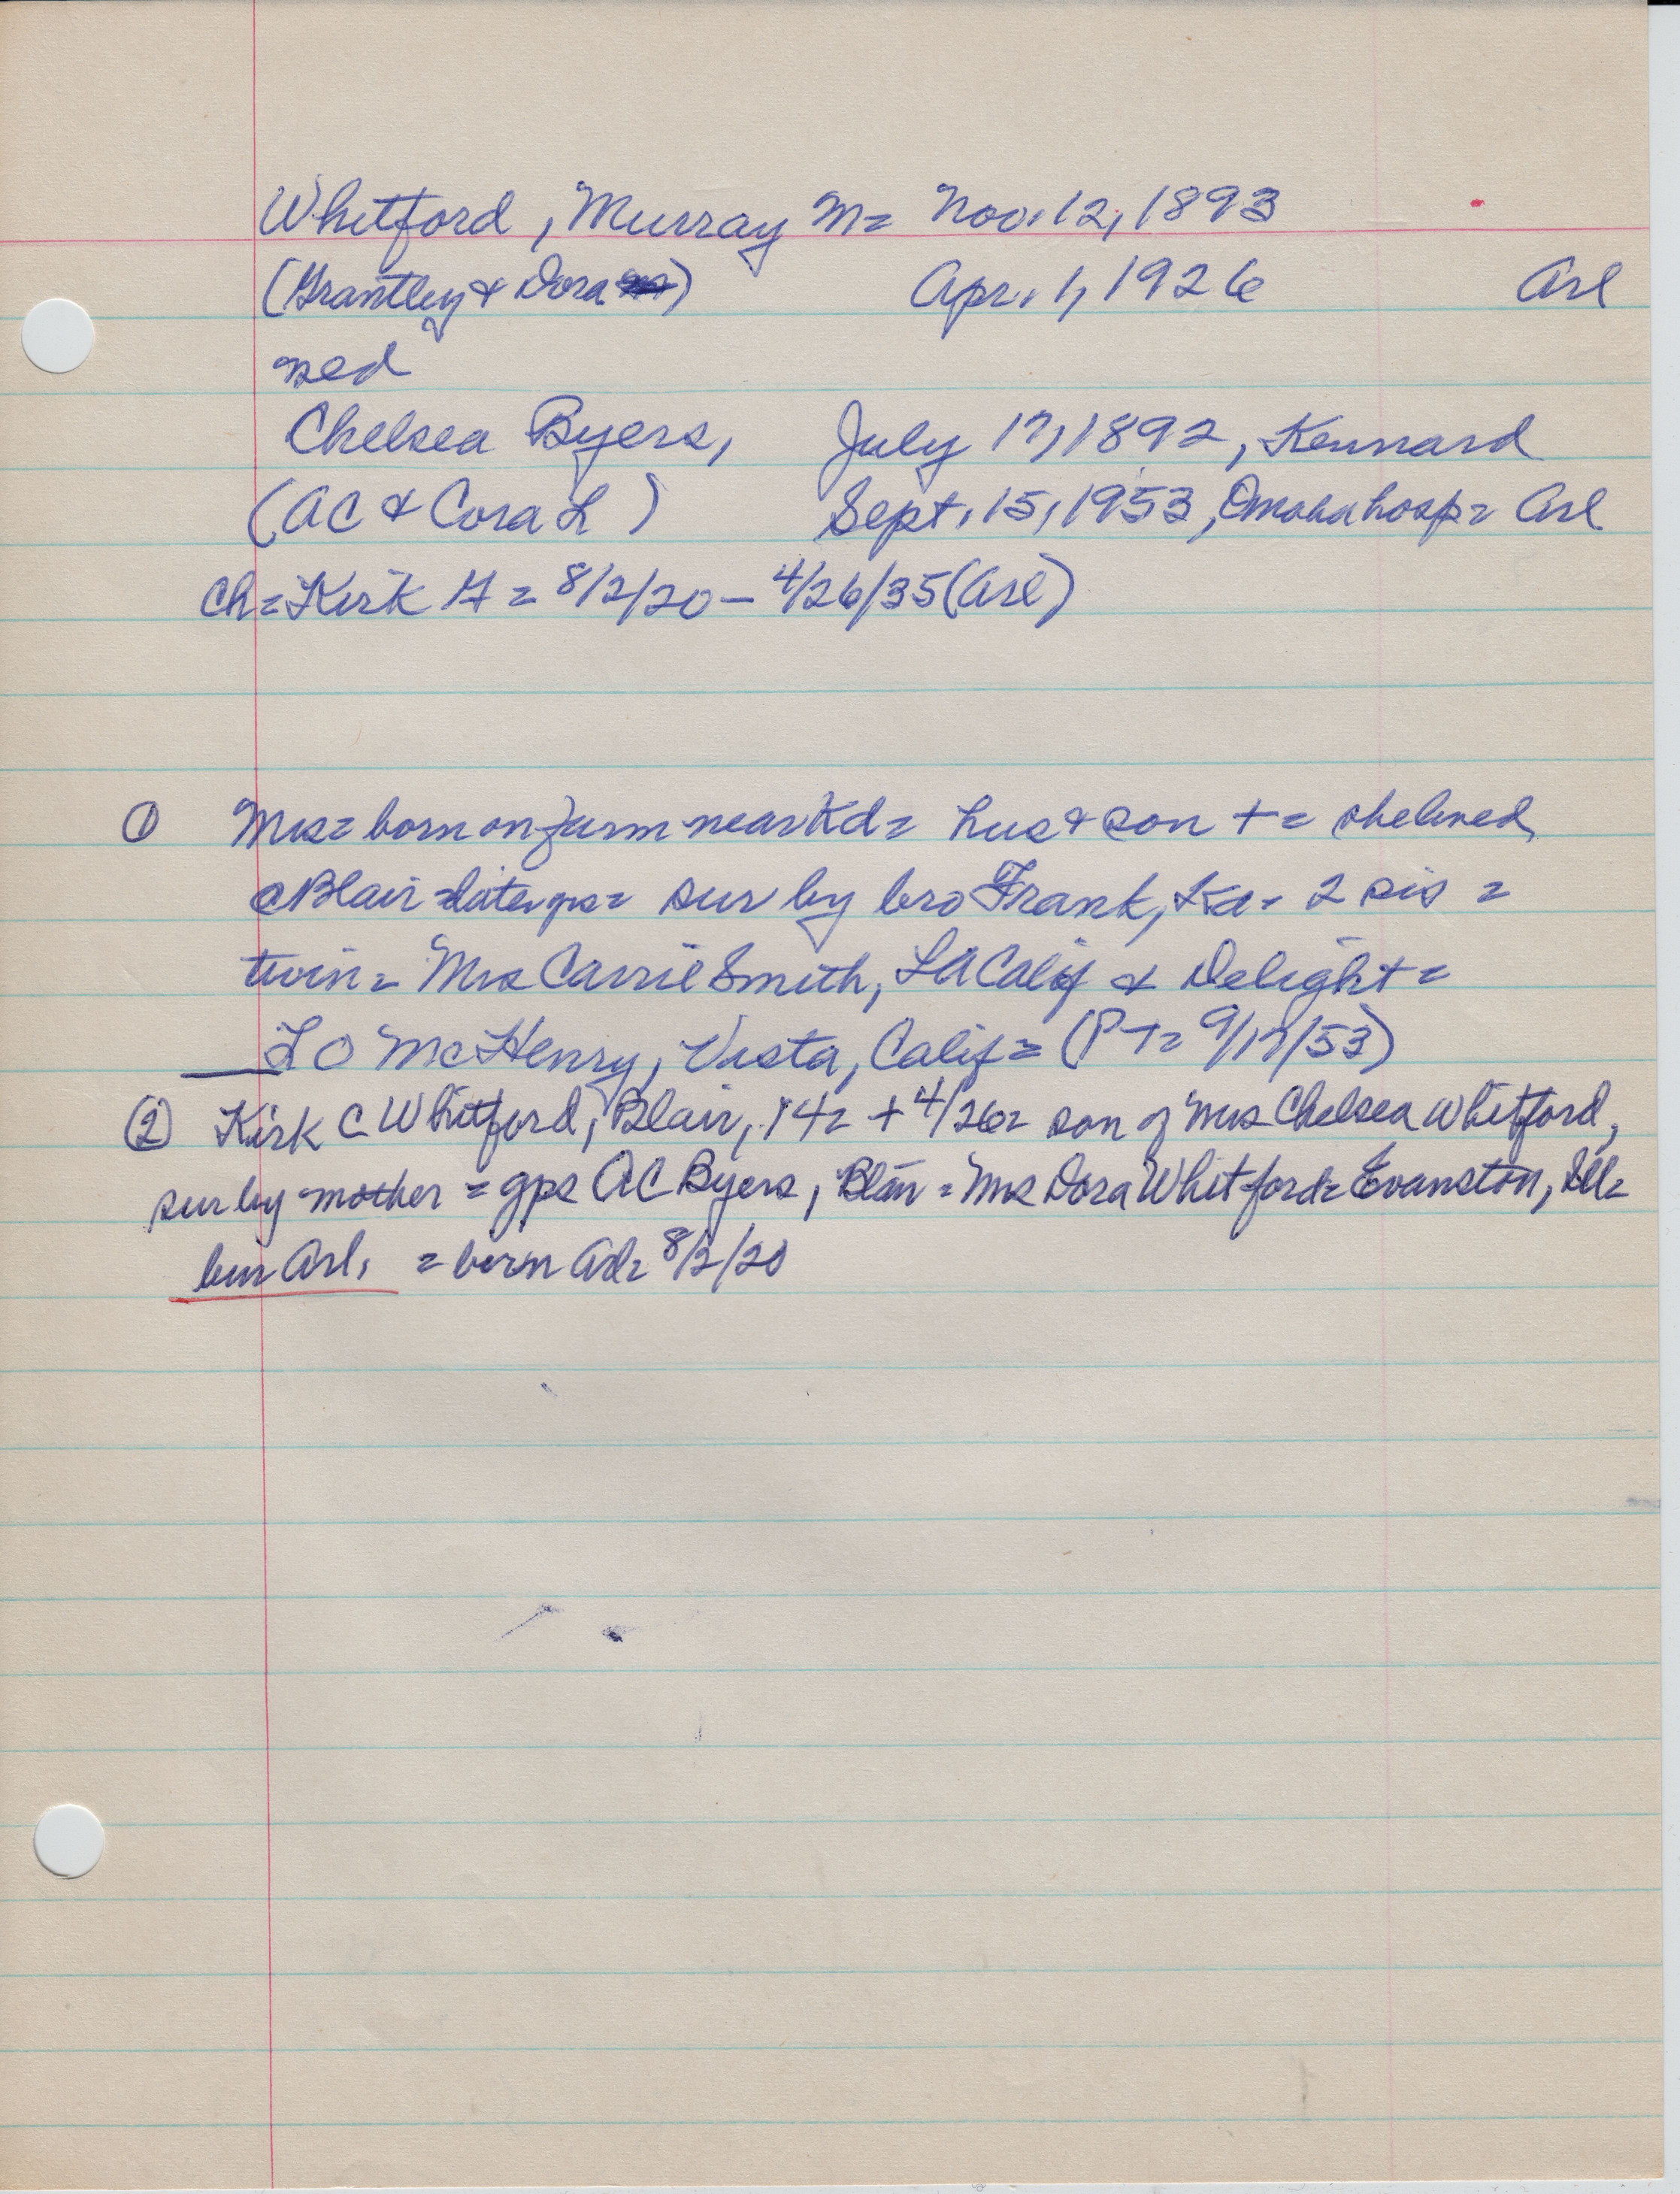 Whitford, Murray M = Nov. 12, 1893
(Grantley & Dora) Apr. 1, 1926 Arl
Chelsea Byers, July 17, 1892, Kennard
(AC & Cora L) Sept. 15, 1953, Omaha hosp = Arl
Ch = Kirk = 8/2/20 – 4/26/35 (Arl)
① Mrs = born on farm near Kd = hus & son + = she lived
Blair = sur by bro Frank, 2 sis =
twin = Mrs Carrie Smith, LA Calif & Delight =
L O McHenry, Vista, Calif = (PT = 9/17/53)
② Kirk C Whitford, Blair, 14 = + 4/26 = son of Mrs Chelsea Whitford,
sur by mother = gps AC Byers, Blair = Mrs Dora Whitford = Evanston, Ill =
bur Arl. = born Arl = 8/2/20